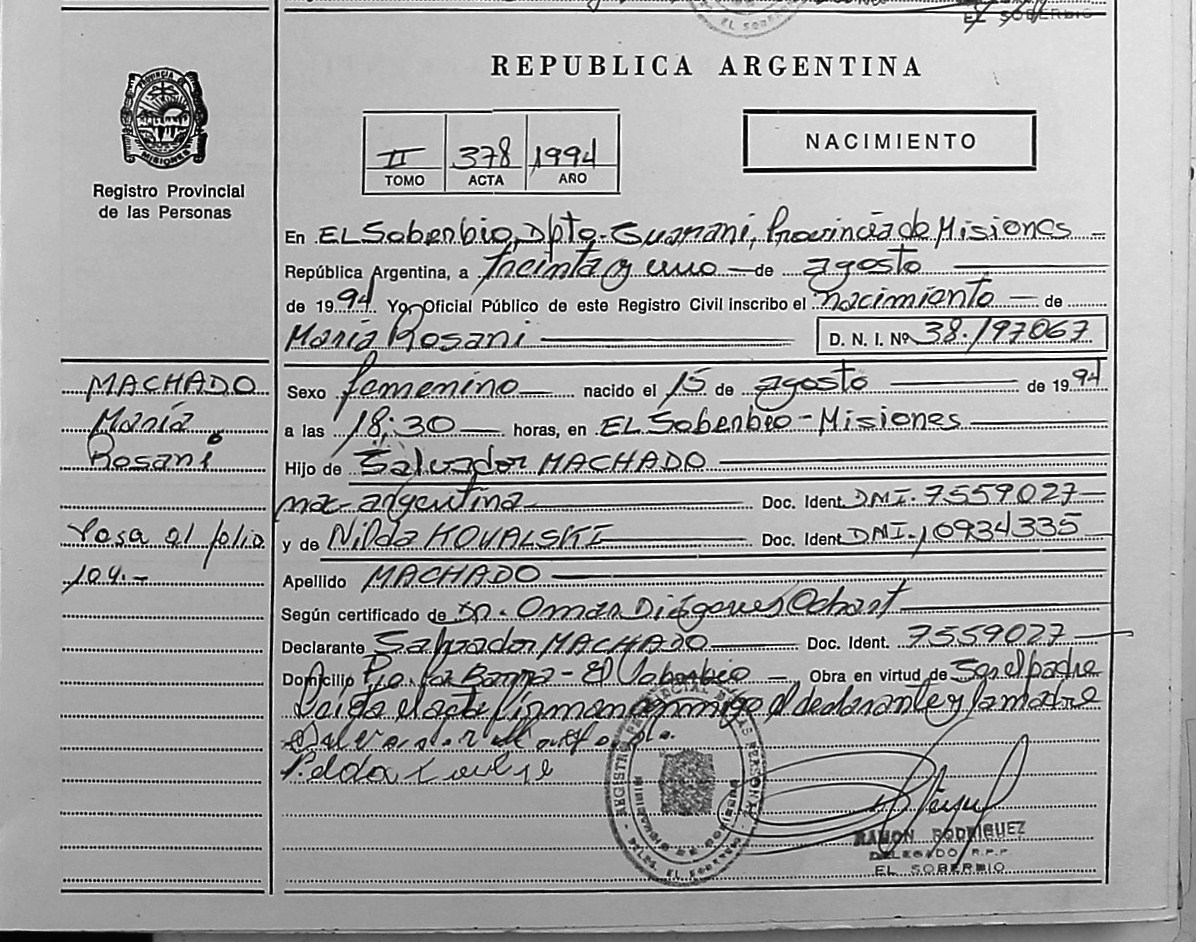 EL SOBERBIO
EL SOBERBIO
REPUBLICA ARGENTINA
PROVINCIA DE
MISIONES
Registro Provincial
de las Personas
II 378 1994
TOMO ACTA AÑO
NACIMIENTO
En EL Soberbio, Dpto. Guaraní, Provincia de Misiones
República Argentina, a treinta y uno de agosto
de 1994 Yo, Oficial Público de este Registro Civil inscribo el nacimiento de
María Rosani D. N. I. Nº 38.197067
MACHADO
María
Rosani
Pasa al folio
104.-
Sexo femenino nacido el 15 de agosto de 1994
a las 18:30 horas, en EL Soberbio - Misiones
Hijo de Salvador MACHADO
nac. argentina Doc. Ident. DNI. 7559027
y de Nilda KOVALSKI Doc. Ident. DNI. 10934335
Apellido MACHADO
Según certificado de Dr. Omar Diógenes
Declarante Salvador MACHADO Doc. Ident. 7559027
Domicilio Pje. La Barra - El Soberbio Obra en virtud de Ser el padre
Leída el acta firman conmigo el declarante y la madre
REGISTRO PROVINCIAL DE LAS PERSONAS
EL SOBERBIO
RAMON RODRIGUEZ
DELEGADO R.P.P.
EL SOBERBIO